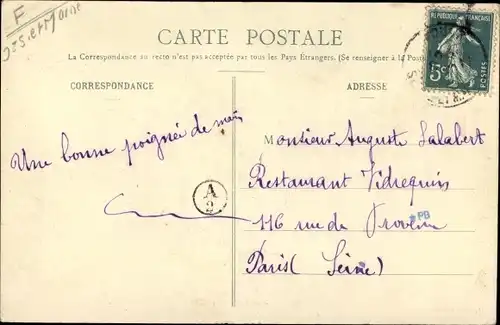 F
CARTE POSTALE
La Correspondance au recto n'est pas acceptée par tous les Pays Etrangers. (Se renseigner à la Poste
CORRESPONDANCE
ADRESSE
REPUBLIQUE FRANÇAISE
5c
POSTES
Une bonne poignée de main
A
2
Monsieur Auguste Lalabert
Restaurant Vidrequin
116 rue de Provence
PB
Paris (Seine)